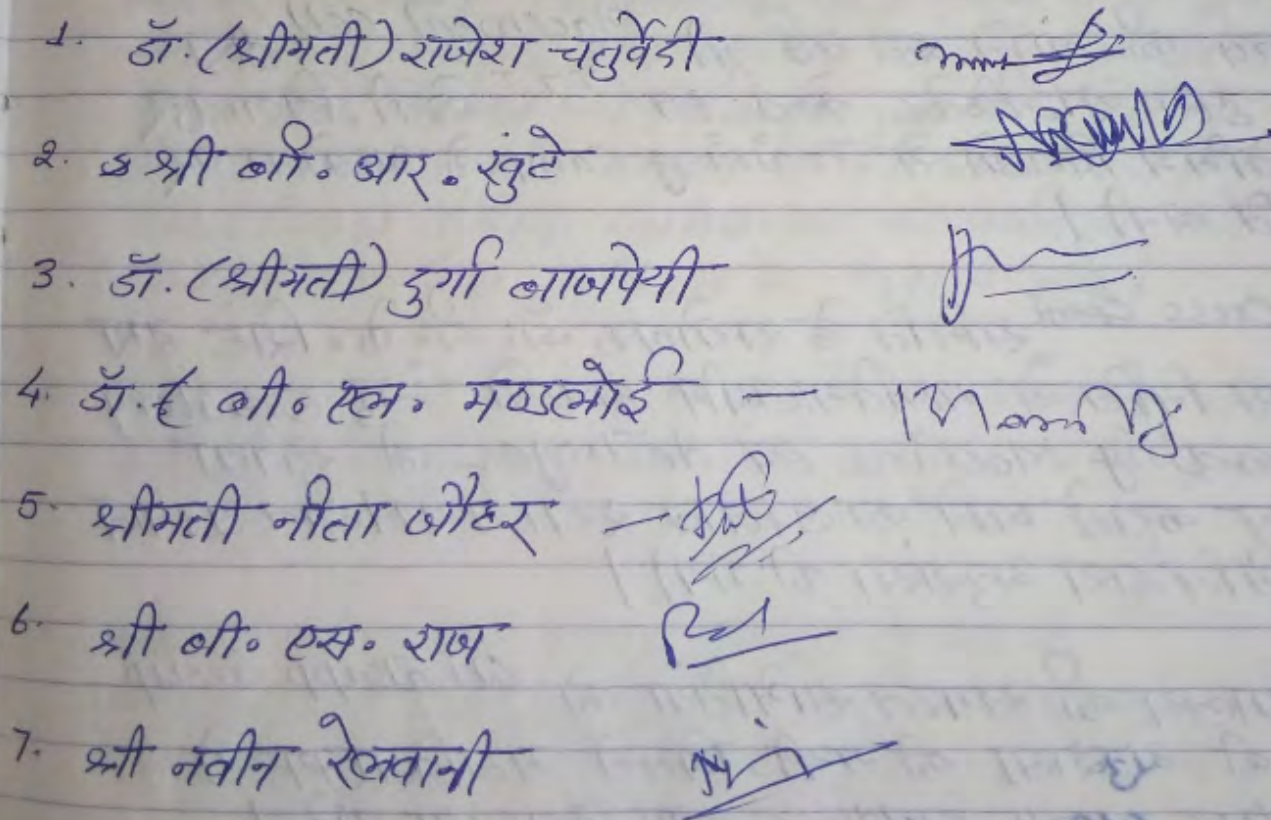 1. डॉ. (श्रीमती) राजेश चतुर्वेदी
2. श्री बी. आर. खुंटे
3. डॉ. (श्रीमती) दुर्गा बाजपेयी
4. डॉ. बी. एल. मण्डलोई —
5. श्रीमती नीता जौहर —
6. श्री बी. एस. राज
7. श्री नवीन रेलवानी